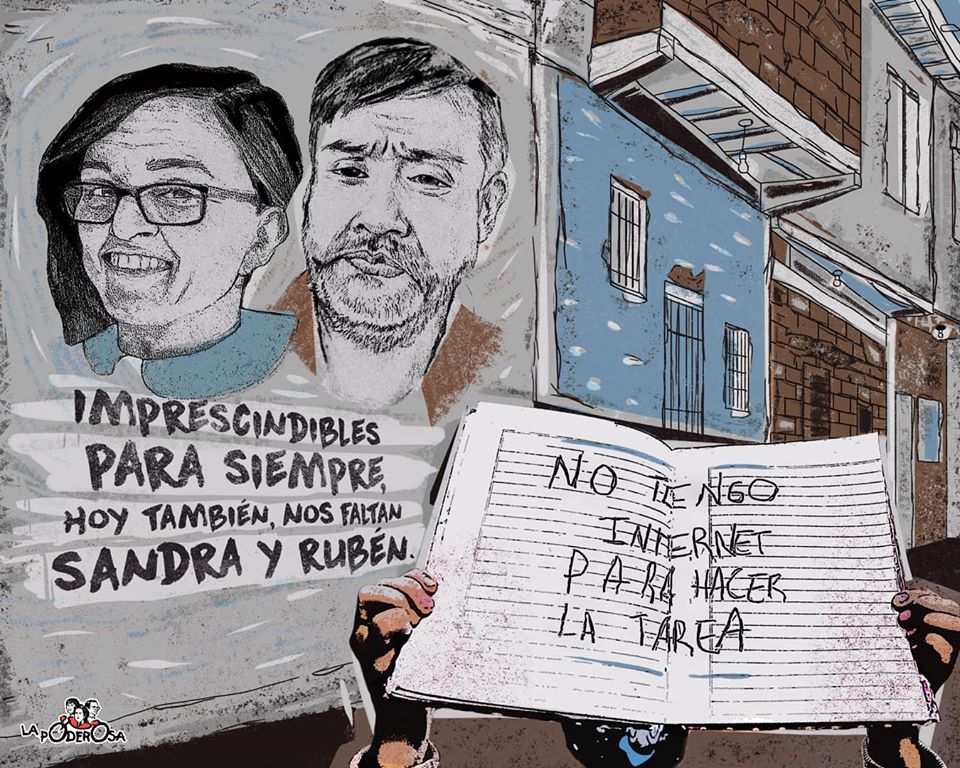 IMPRESCINDIBLES
PARA SIEMPRE,
HOY TAMBIÉN, NOS FALTAN
SANDRA Y RUBÉN.
NO TENGO
INTERNET
PARA HACER
LA TAREA
LA PODEROSA